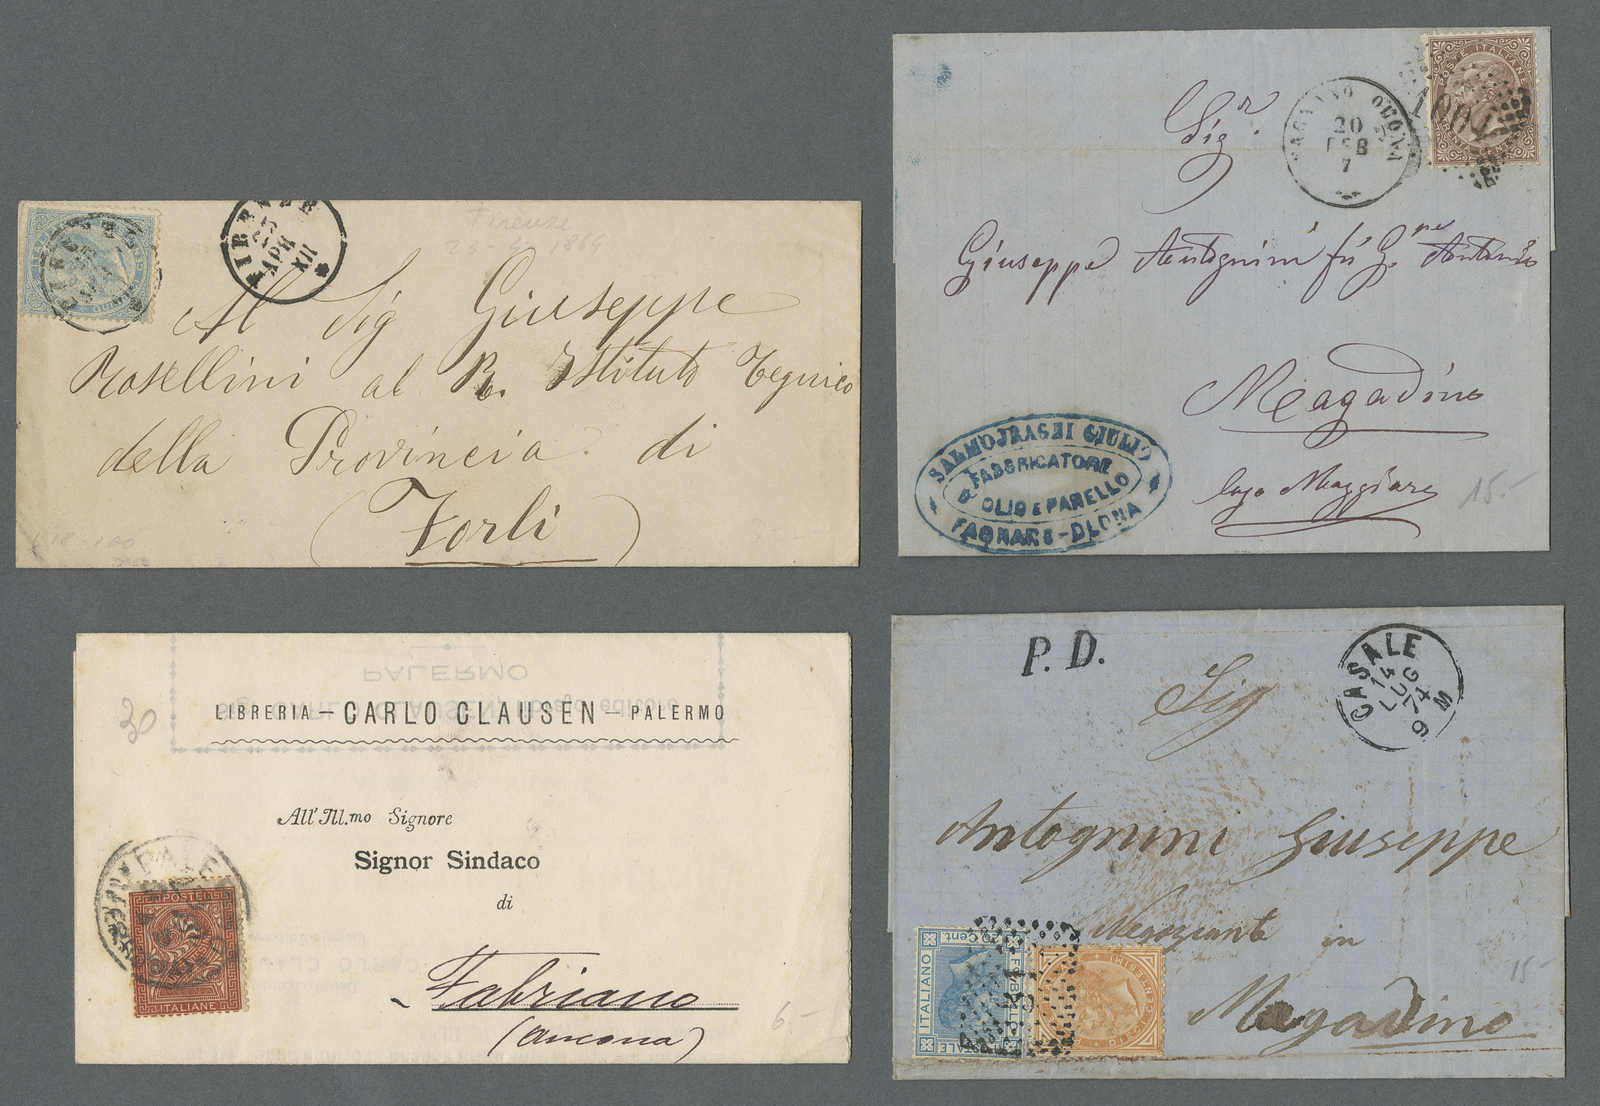 FIRENZE
23
APR
XII
Firenze
23-4-1869
Al Sig Giuseppe
Rosellini al R. Istituto Tegnico
della Provincia di
Forlì
POSTE ITALIANE
20
FEB
7
Sigr.
Giuseppe Antognini fú Gne Antonio
Magadino
Lago Maggiore
15.-
SALMOJRAGHI GIULIO
FABBRICATORE
D'OLIO E PANELLO
FAGNANO-OLONA
PALERMO
30
LIBRERIA — CARLO CLAUSEN — PALERMO
All'Ill.mo Signore
Signor Sindaco
di
Fabriano
(Ancona)
6.-
POSTE
ITALIANE
P. D.
CASALE
14
LUG
74
9 M
Sig
Antognini Giuseppe
Negoziante in
Magadino
15-
20 Cent
ITALIANO